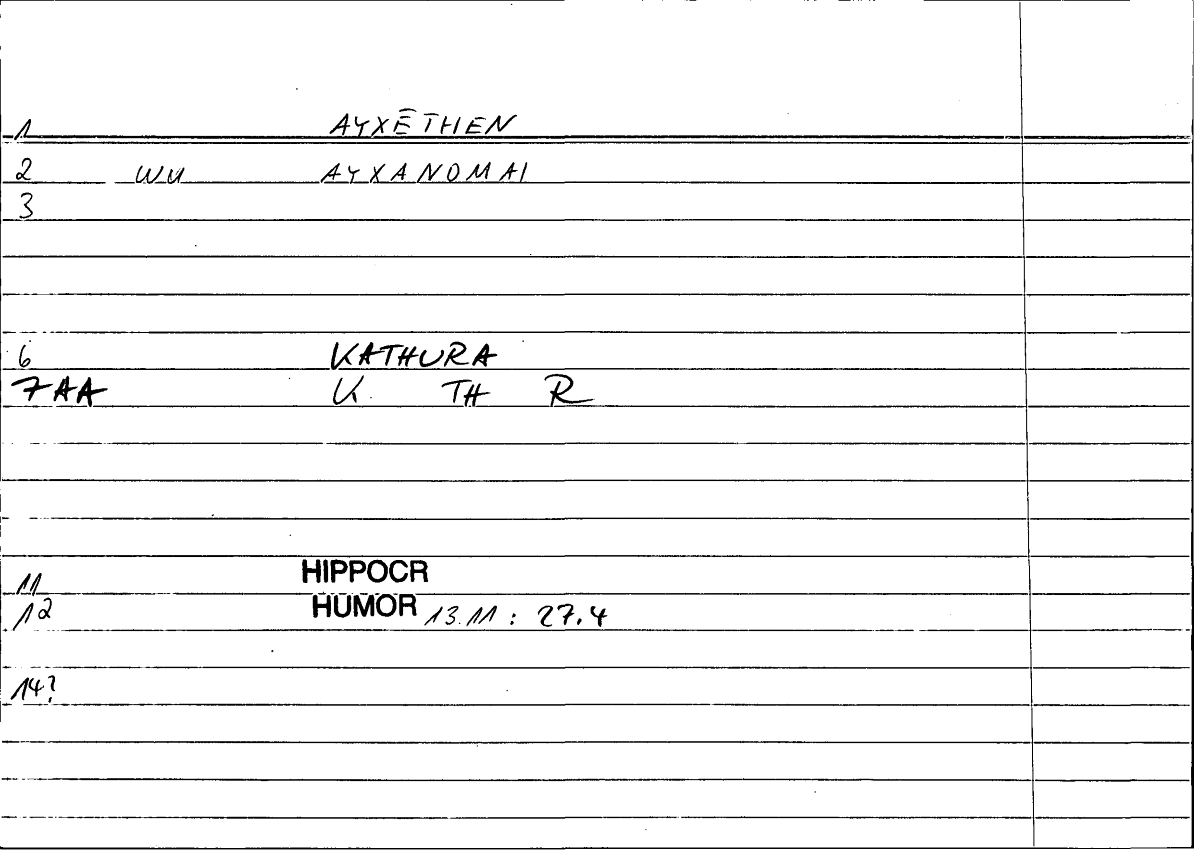 1 AYXĒTHEN
2 WU AYXANOMAI
3
6 KATHURA
7AA K TH R
11 HIPPOCR
12 HUMOR 13.11 : 27.4
14?